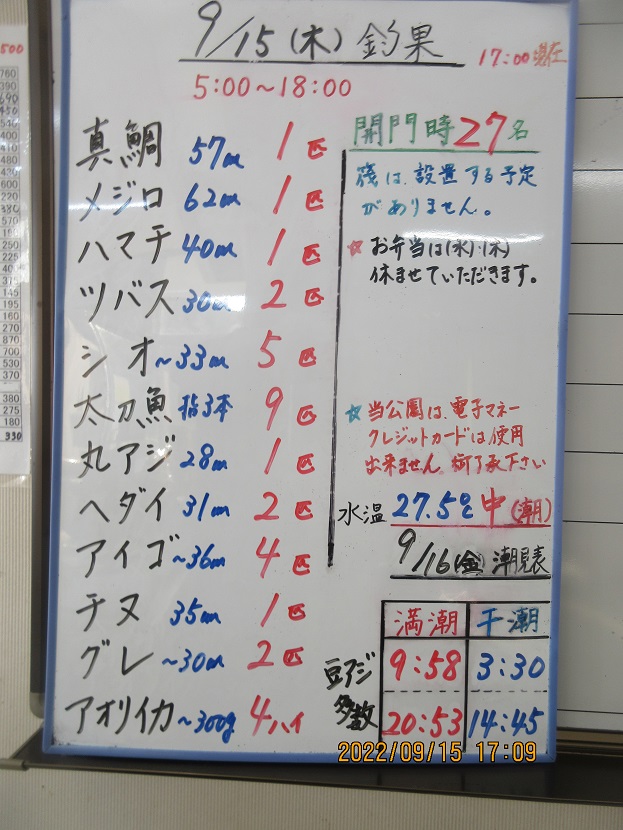 9/15(木)釣果
17:00現在
5:00~18:00
真鯛 57㎝ 1匹
メジロ 62㎝ 1匹
ハマチ 40㎝ 1匹
ツバス 30㎝ 2匹
シオ ~33㎝ 5匹
太刀魚 指3本 9匹
丸アジ 28㎝ 1匹
ヘダイ 31㎝ 2匹
アイゴ ~36㎝ 4匹
チヌ 35㎝ 1匹
グレ ~30㎝ 2匹
アオリイカ ~300g 4ハイ
開門時27名
筏は、設置する予定
がありません。
☆お弁当は(水)・(木)
休ませていただきます。
☆当公園は、電子マネー
クレジットカードは使用
出来ません 御了承下さい
水温 27.5℃ 中(潮)
9/16(金)潮見表
満潮 干潮
9:58 3:30
20:53 14:45
豆アジ
多数
2022/09/15 17:09